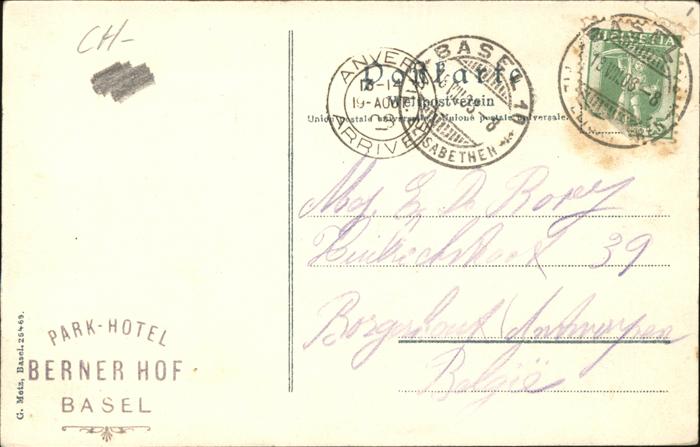 CH-
Postkarte
Weltpostverein
Union postale universelle. Unione postale universale.
ANVERS
18-19
19-AOU
ARRIVEE
BASEL 10
ELISABETHEN
HELVETIA
BASEL
19.VIII.08-8
Mej. E. De Borey
39
Borgerhout Antwerpen
België
G. Metz, Basel. 26469.
PARK-HOTEL
BERNER HOF
BASEL